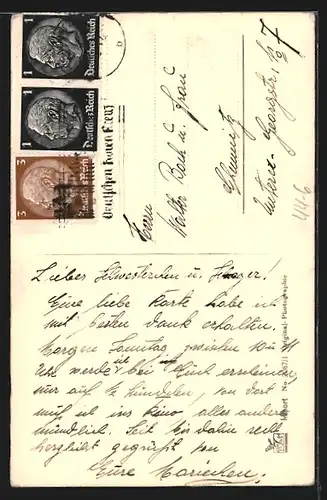 1
Deutsches Reich
1
Deutsches Reich
3
Deutsches Reich
Deutschen Roten Kreuz
Herrn
Walter Bach u. Frau
Chemnitz
Untere Georgstr.
7
44-6
Lieber Silvesterchen u.
Eure liebe Karte habe ich
mit besten Dank erhalten.
Morgen Sonntag zwischen 10 u. 11
Uhr werde ich bei Euch erscheinen
nur auf ½ Stündchen, von dort
muß ich ins Kino alles andere
mündlich. Seit bis dahin recht
herzlichst gegrüßt von
Eure Mariechen.
Import No. Original-Photographie